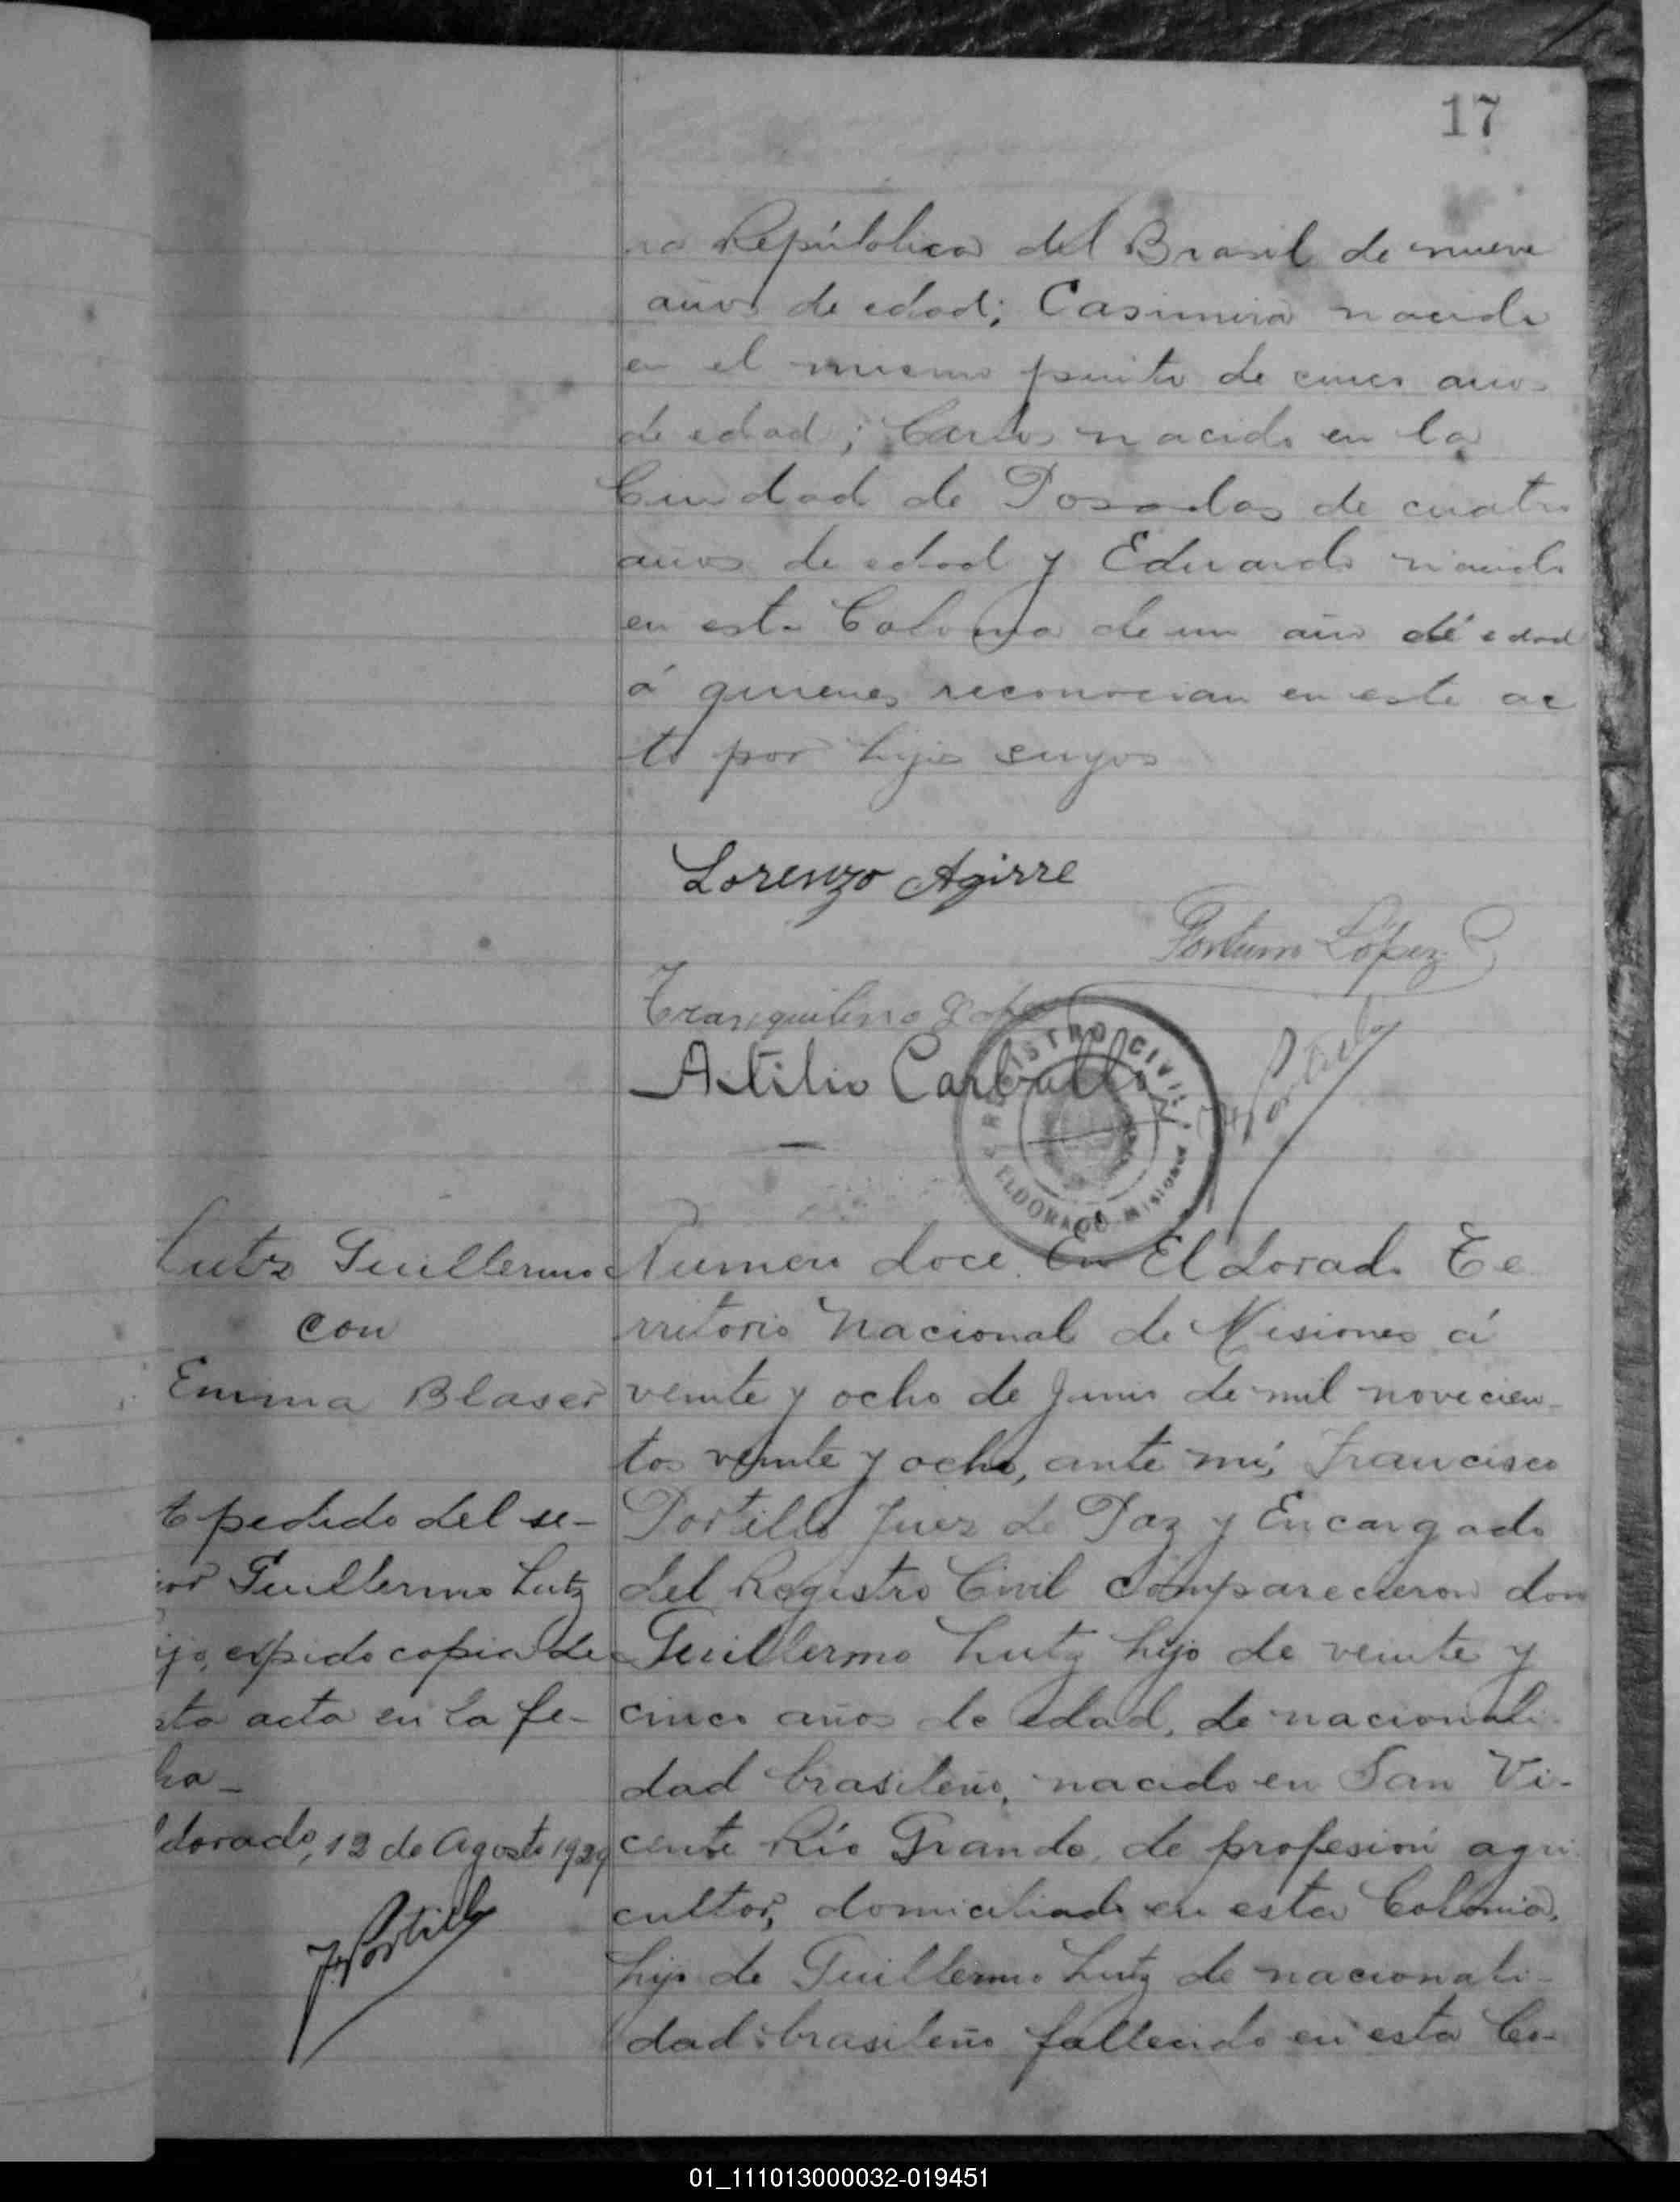 17
na República del Brasil de nueve
años de edad; Casimira nacida
en el mismo punto de cinco años
de edad; Carlos nacido en la
Ciudad de Posadas de cuatro
años de edad y Eduardo nacido
en esta Colonia de un año de edad
á quienes reconocian en este ac
to por hijos suyos
Lorenzo Agirre
López
Tranquilino
Atilio Carballo
REGISTRO CIVIL
ELDORADO Misiones
Portillo
Lutz Guillermo
con
Emma Blaser
A pedido del se-
ñor Guillermo Lutz
hijo, expido copia de
esta acta en la fe-
cha_
Eldorado, 12 de Agosto 1929
F. Portillo
Numero doce. En El dorado Te
rritorio Nacional de Misiones á
veinte y ocho de Junio de mil novecien-
tos veinte y ocho, ante mí, Francisco
Portillo Juez de Paz y Encargado
del Registro Civil comparecieron don
Guillermo Lutz hijo de veinte y
cinco años de edad, de nacionali-
dad brasileño, nacido en San Vi-
cente Río Grande, de profesión agri
cultor, domiciliado en esta Colonia,
hijo de Guillermo Lutz de nacionali-
dad brasileño fallecido en esta Co-
01_111013000032-019451